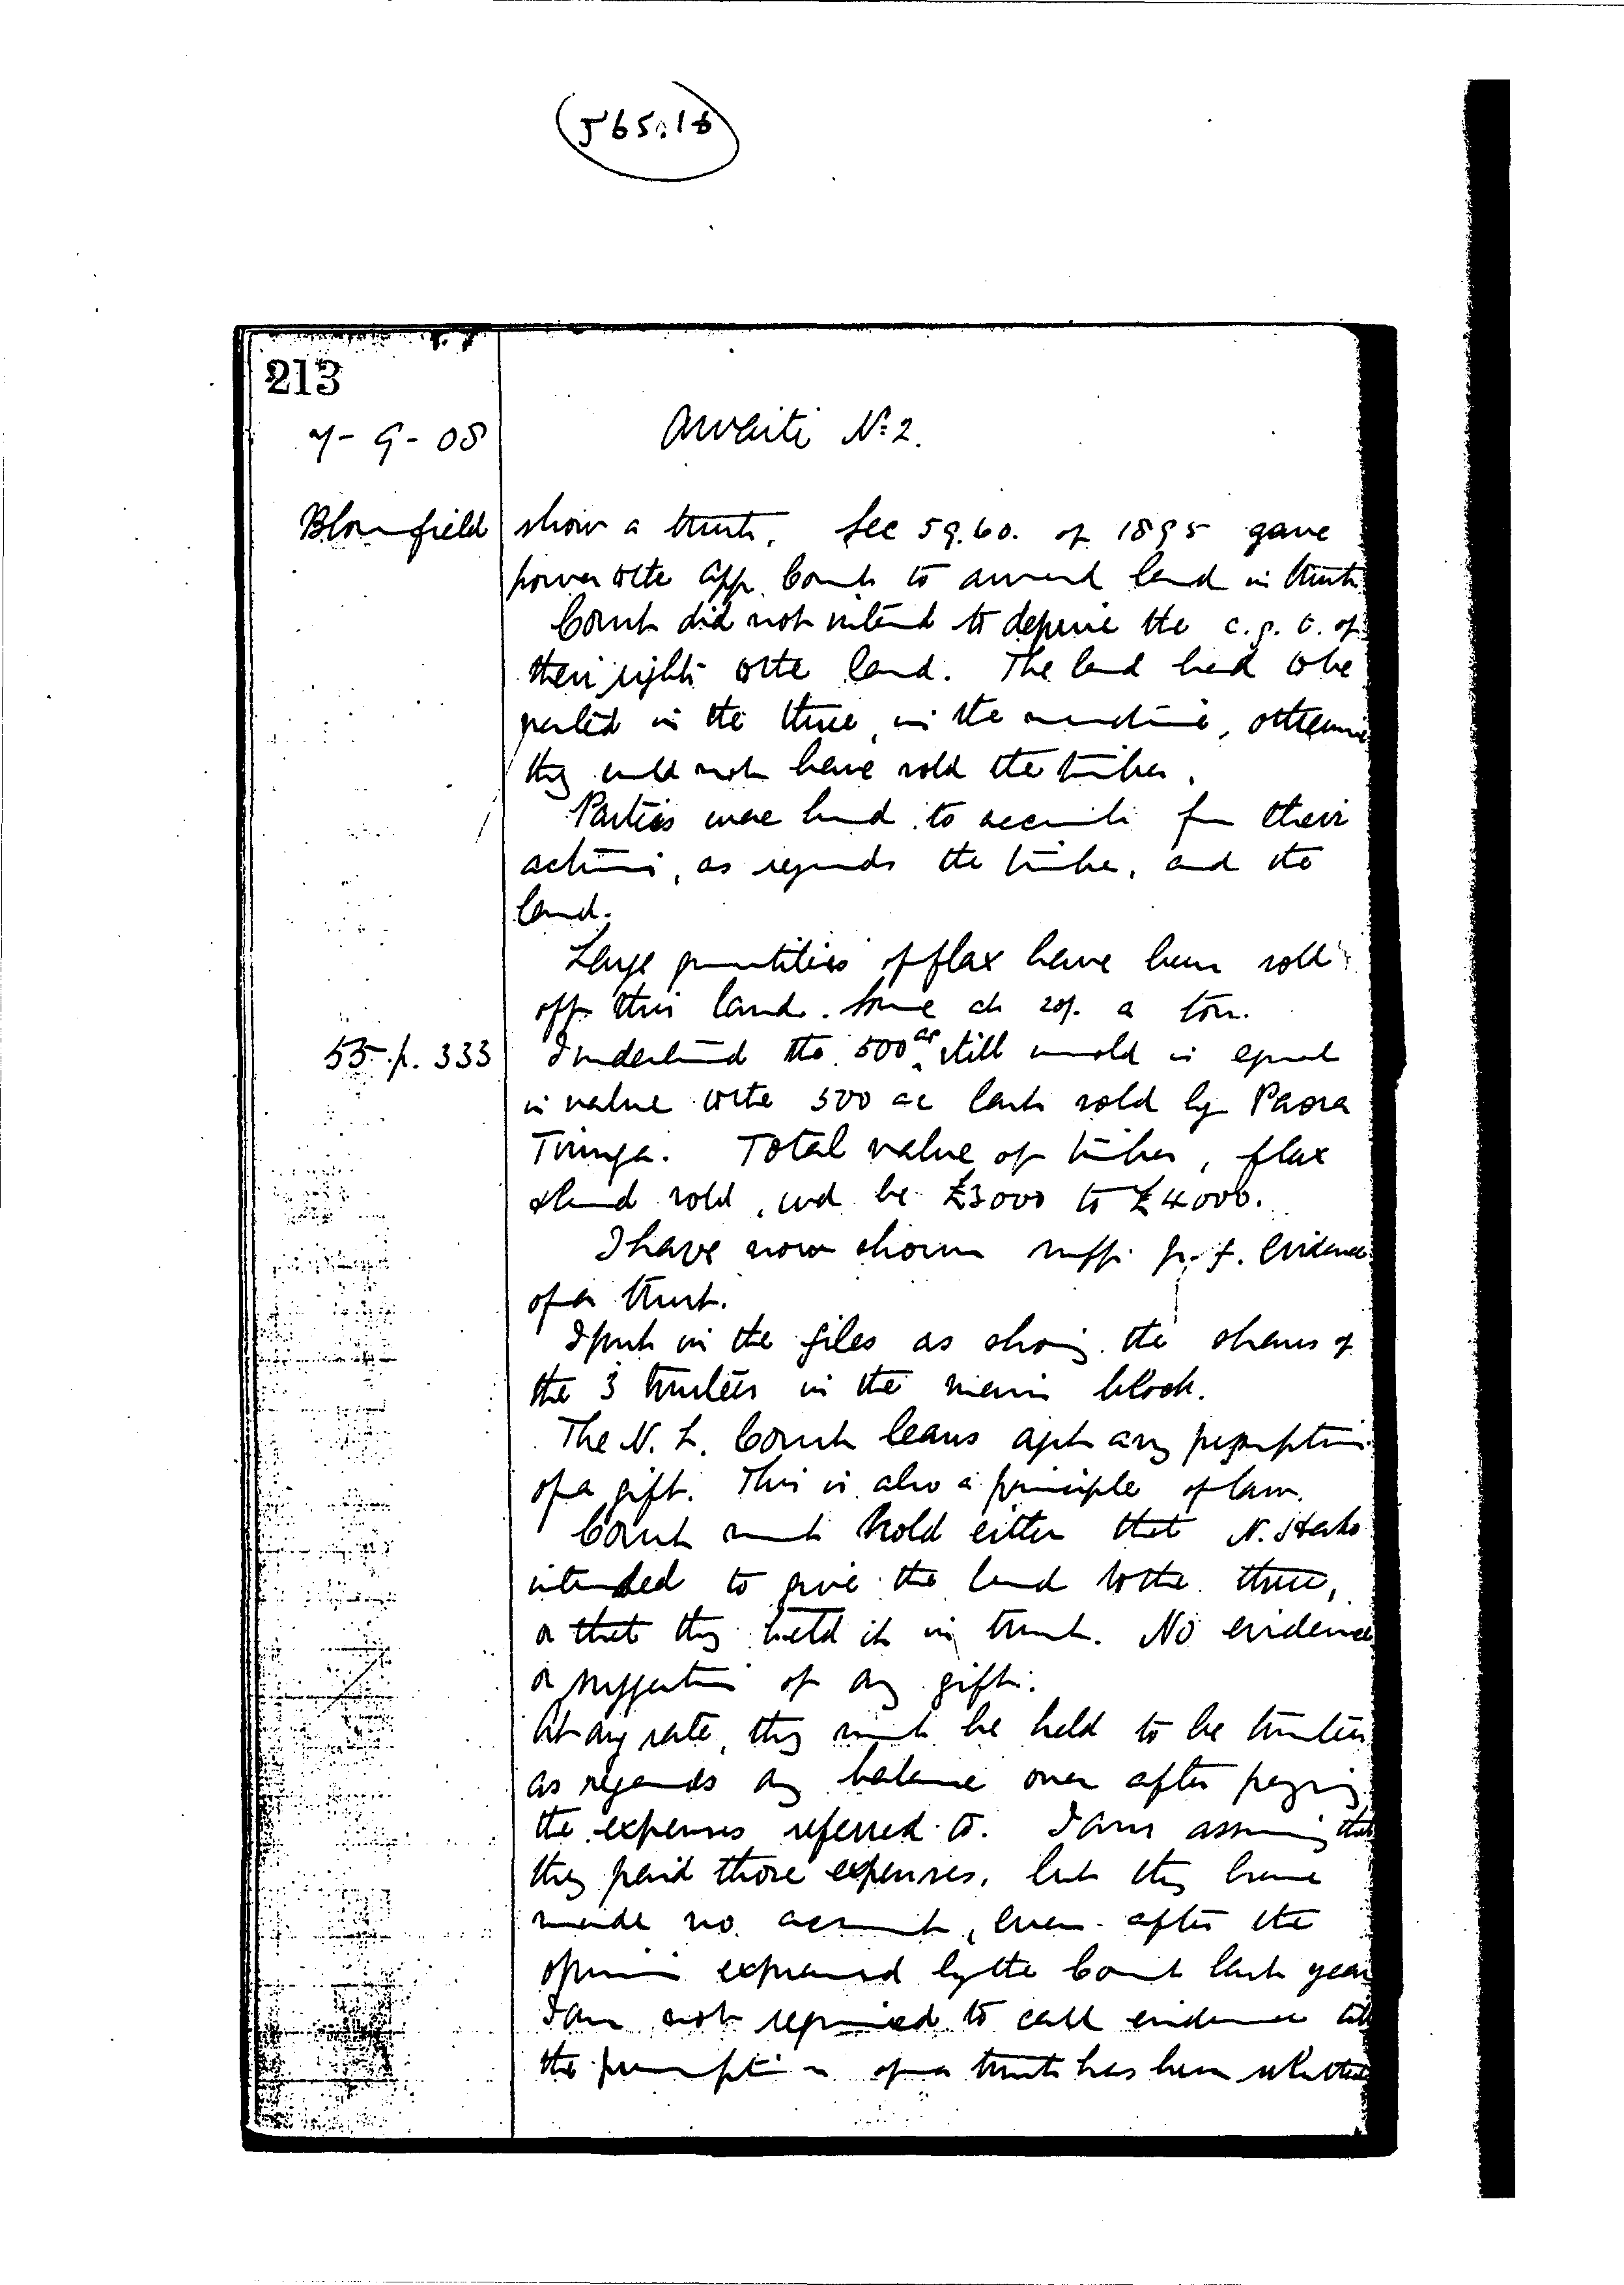 565.18
213
7-9-08
Awaiti No 2.
Blomfield
show a trust. Sec 59.60. of 1895 gave
power to the App. Court to award land in trust
Court did not intend to deprive the c.g.t. of
their rights to the land. The land had to be
vested in the three, in the meantime, otherwise
they could not have sold the timber.
Parties were bound to account for their
actions, as regards the timber, and the
land.
Large quantities of flax have been sold
off this land. Some at 20/. a ton.
55.p. 333
I understand the 500 ac still unsold is equal
in value to the 500 ac last sold by Paora
Tiunga. Total value of timber, flax
& land sold, wd be £3000 to £4000.
I have now shown suffi. p. f. evidence
of a trust.
I put in the files as showing the shares of
the 3 trustees in the main block.
The N. L. Court leans agst any presumption
of a gift. This is also a principle of law.
Court must hold either that N.
intended to give the land to the three,
or that they held it in trust. No evidence
or suggestion of any gift.
At any rate, they must be held to be trustees
as regards any balance over after paying
the expenses referred to. I am assuming that
they paid those expenses, but they have
made no account, even after the
opinion expressed by the Court last year
I am not required to call evidence till
the presumption of a trust has been rebutted